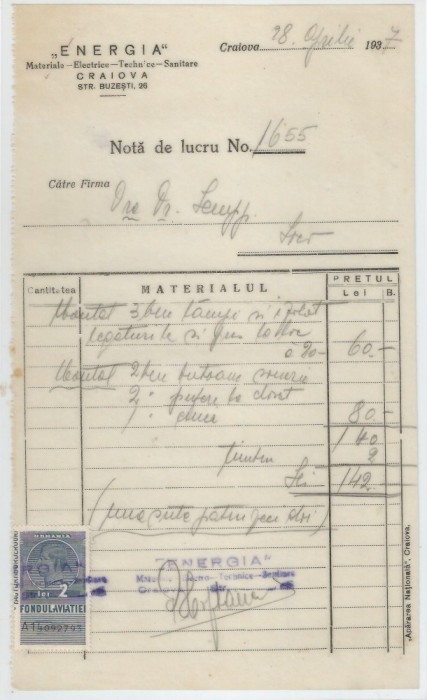 „ENERGIA"
Materiale—Electrice—Technice—Sanitare
CRAIOVA
STR. BUZEȘTI, 26
Craiova 28. Aprilie 1937
Notă de lucru No. 1655
Către Firma
Dna Dr.
Loco
Cantitatea MATERIALUL PREȚUL
Lei B.
Montat 3 buc lămpi și izolat
legăturile și
a 20- 60.-
Montat 2 buc butoane sonerie
2 " prefere
1 " 80.-
140
timbru 2
Lei 142.-
(una sută patru zeci doi)
ROMANIA
lei 2
FONDULAVIAȚIEI
A15092793
"ENERGIA"
Materiale—Electro—Technice—Sanitare
Craiova
„Apărarea Națională", Craiova.